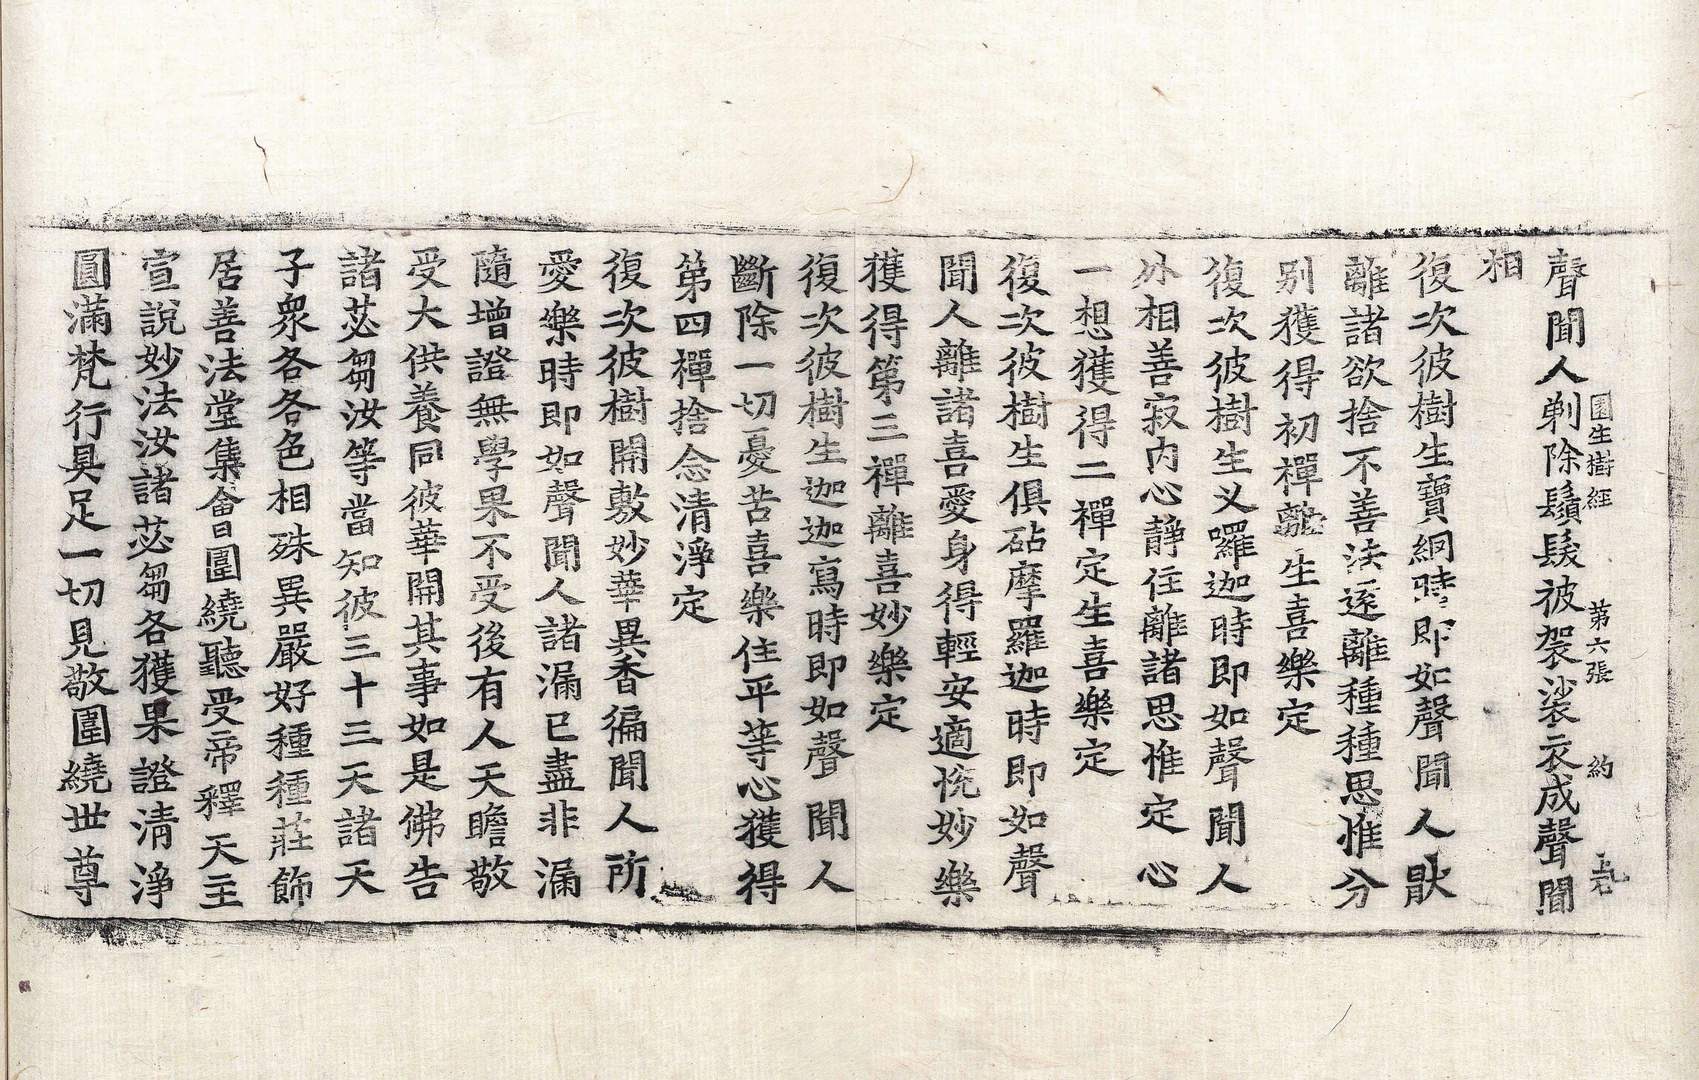 聲聞人剃除鬚髮被袈裟衣成聲聞
園生樹經 第六張 約
相
復次彼樹生寶網時即如聲聞人猒
離諸欲捨不善法逺離種種思惟分
別獲得初禪離生喜樂定
復次彼樹生义囉迦時即如聲聞人
外相善寂內心靜住離諸思惟定心
一想獲得二禪定生喜樂定
復次彼樹生俱砧摩羅迦時即如聲
聞人離諸喜愛身得輕安適悅妙樂
獲得第三禪離喜妙樂定
復次彼樹生迦迦寫時即如聲聞人
斷除一切憂苦喜樂住平等心獲得
第四禪捨念清淨定
復次彼樹開敷妙華異香徧聞人所
愛樂時即如聲聞人諸漏已盡非漏
隨增證無學果不受後有人天瞻敬
受大供養同彼華開其事如是佛告
諸苾芻汝等當知彼三十三天諸天
子衆各各色相殊異嚴好種種莊飾
居善法堂集會圍繞聽受帝釋天主
宣說妙法汝諸苾芻各獲果證清淨
圓滿梵行具足一切見敬圍繞世尊